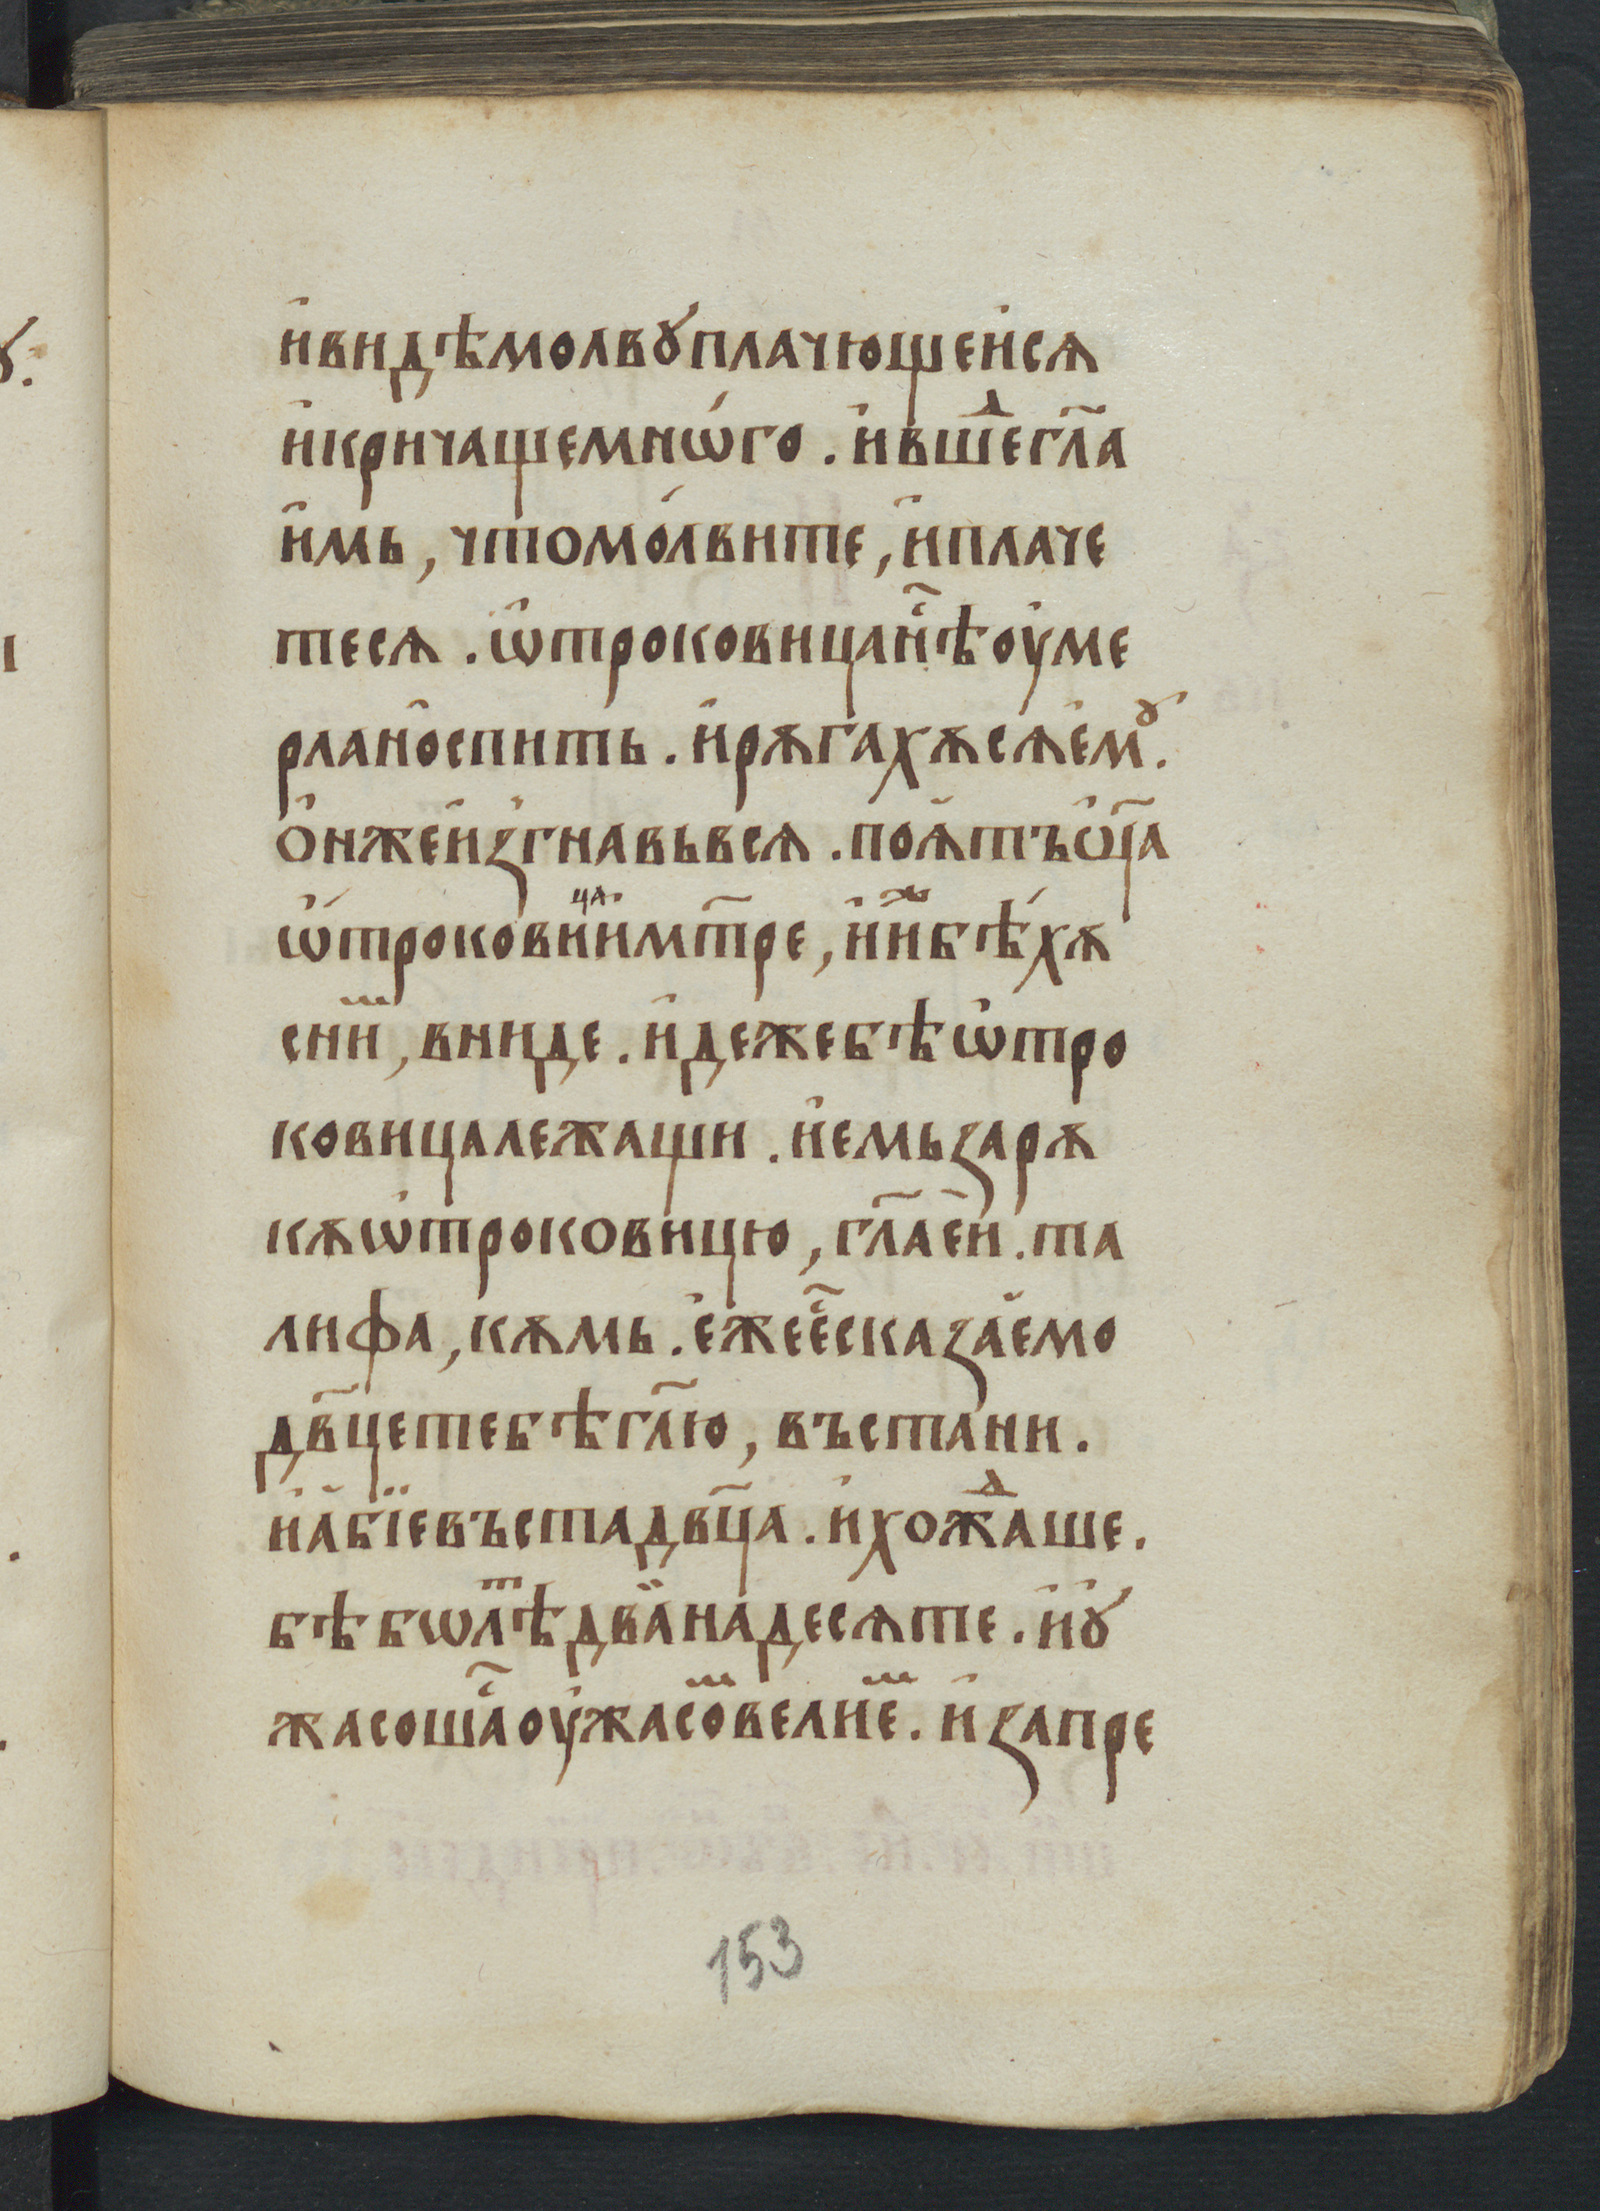 и҆видѣмолвꙋплачющеи҆сѧ
и҆кричащемнѡ́го . и҆вшеⷣгл҃а
и҆мь , чтомо́лвите , и҆плаче
тесѧ . ѡ҆троковицанⷭ҇ѣоу҆ме
рлано҆спить . и҆рѫгахѫсѧе҆мꙋ .
о҆нжеи҆ꙁгнавьвсѧ . поѧ҆тъѡ҆ц҃а
ѡ҆́трокови ца имт҃ре , и҆и҆жⷤбѣ́хѫ
сниⷨ , вниде . и҆дежебѣѡ҆тро
ковицалежащи . и҆емьꙁарѫ
кѫѡ҆троковицю , гл҃ае҆и . та
лифа , кѫмь . е҆жееⷭ҇скаꙁае҆мо
дв҃цетебѣгл҃ю , въстани .
и҆а҆бїевъстадв҃ца . и҆хожⷣаше .
бѣбѡлⷮѣдванадесѧте . и҆ꙋ҆
жасошаⷭ҇оу҆жасоⷨвелиеⷨ . и҆ꙁапре
153